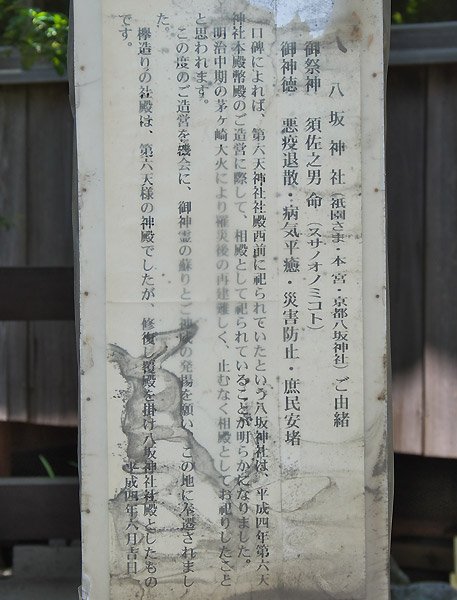 八坂神社(祇園さま・本宮・京都八坂神社)ご由緒
御祭神 須佐之男命(スサノオノミコト)
御神徳 悪疫退散・病気平癒・災害防止・庶民安堵
口碑によれば、第六天神社社殿西前に祀られていたという八坂神社は、平成四年第六天
神社本殿幣殿のご造営に際して、相殿として祀られていることが明らかになりました。
明治中期の茅ヶ崎大火により罹災後の再建難しく、止むなく相殿としてお祀りしたこと
と思われます。
この度のご造営を機会に、御神霊の蘇りとご神威の発揚を願い、この地に奉遷されまし
た。
欅造りの社殿は、第六天様の神殿でしたが、修復し覆殿を掛け八坂神社社殿としたもの
です。
平成四年六月吉日